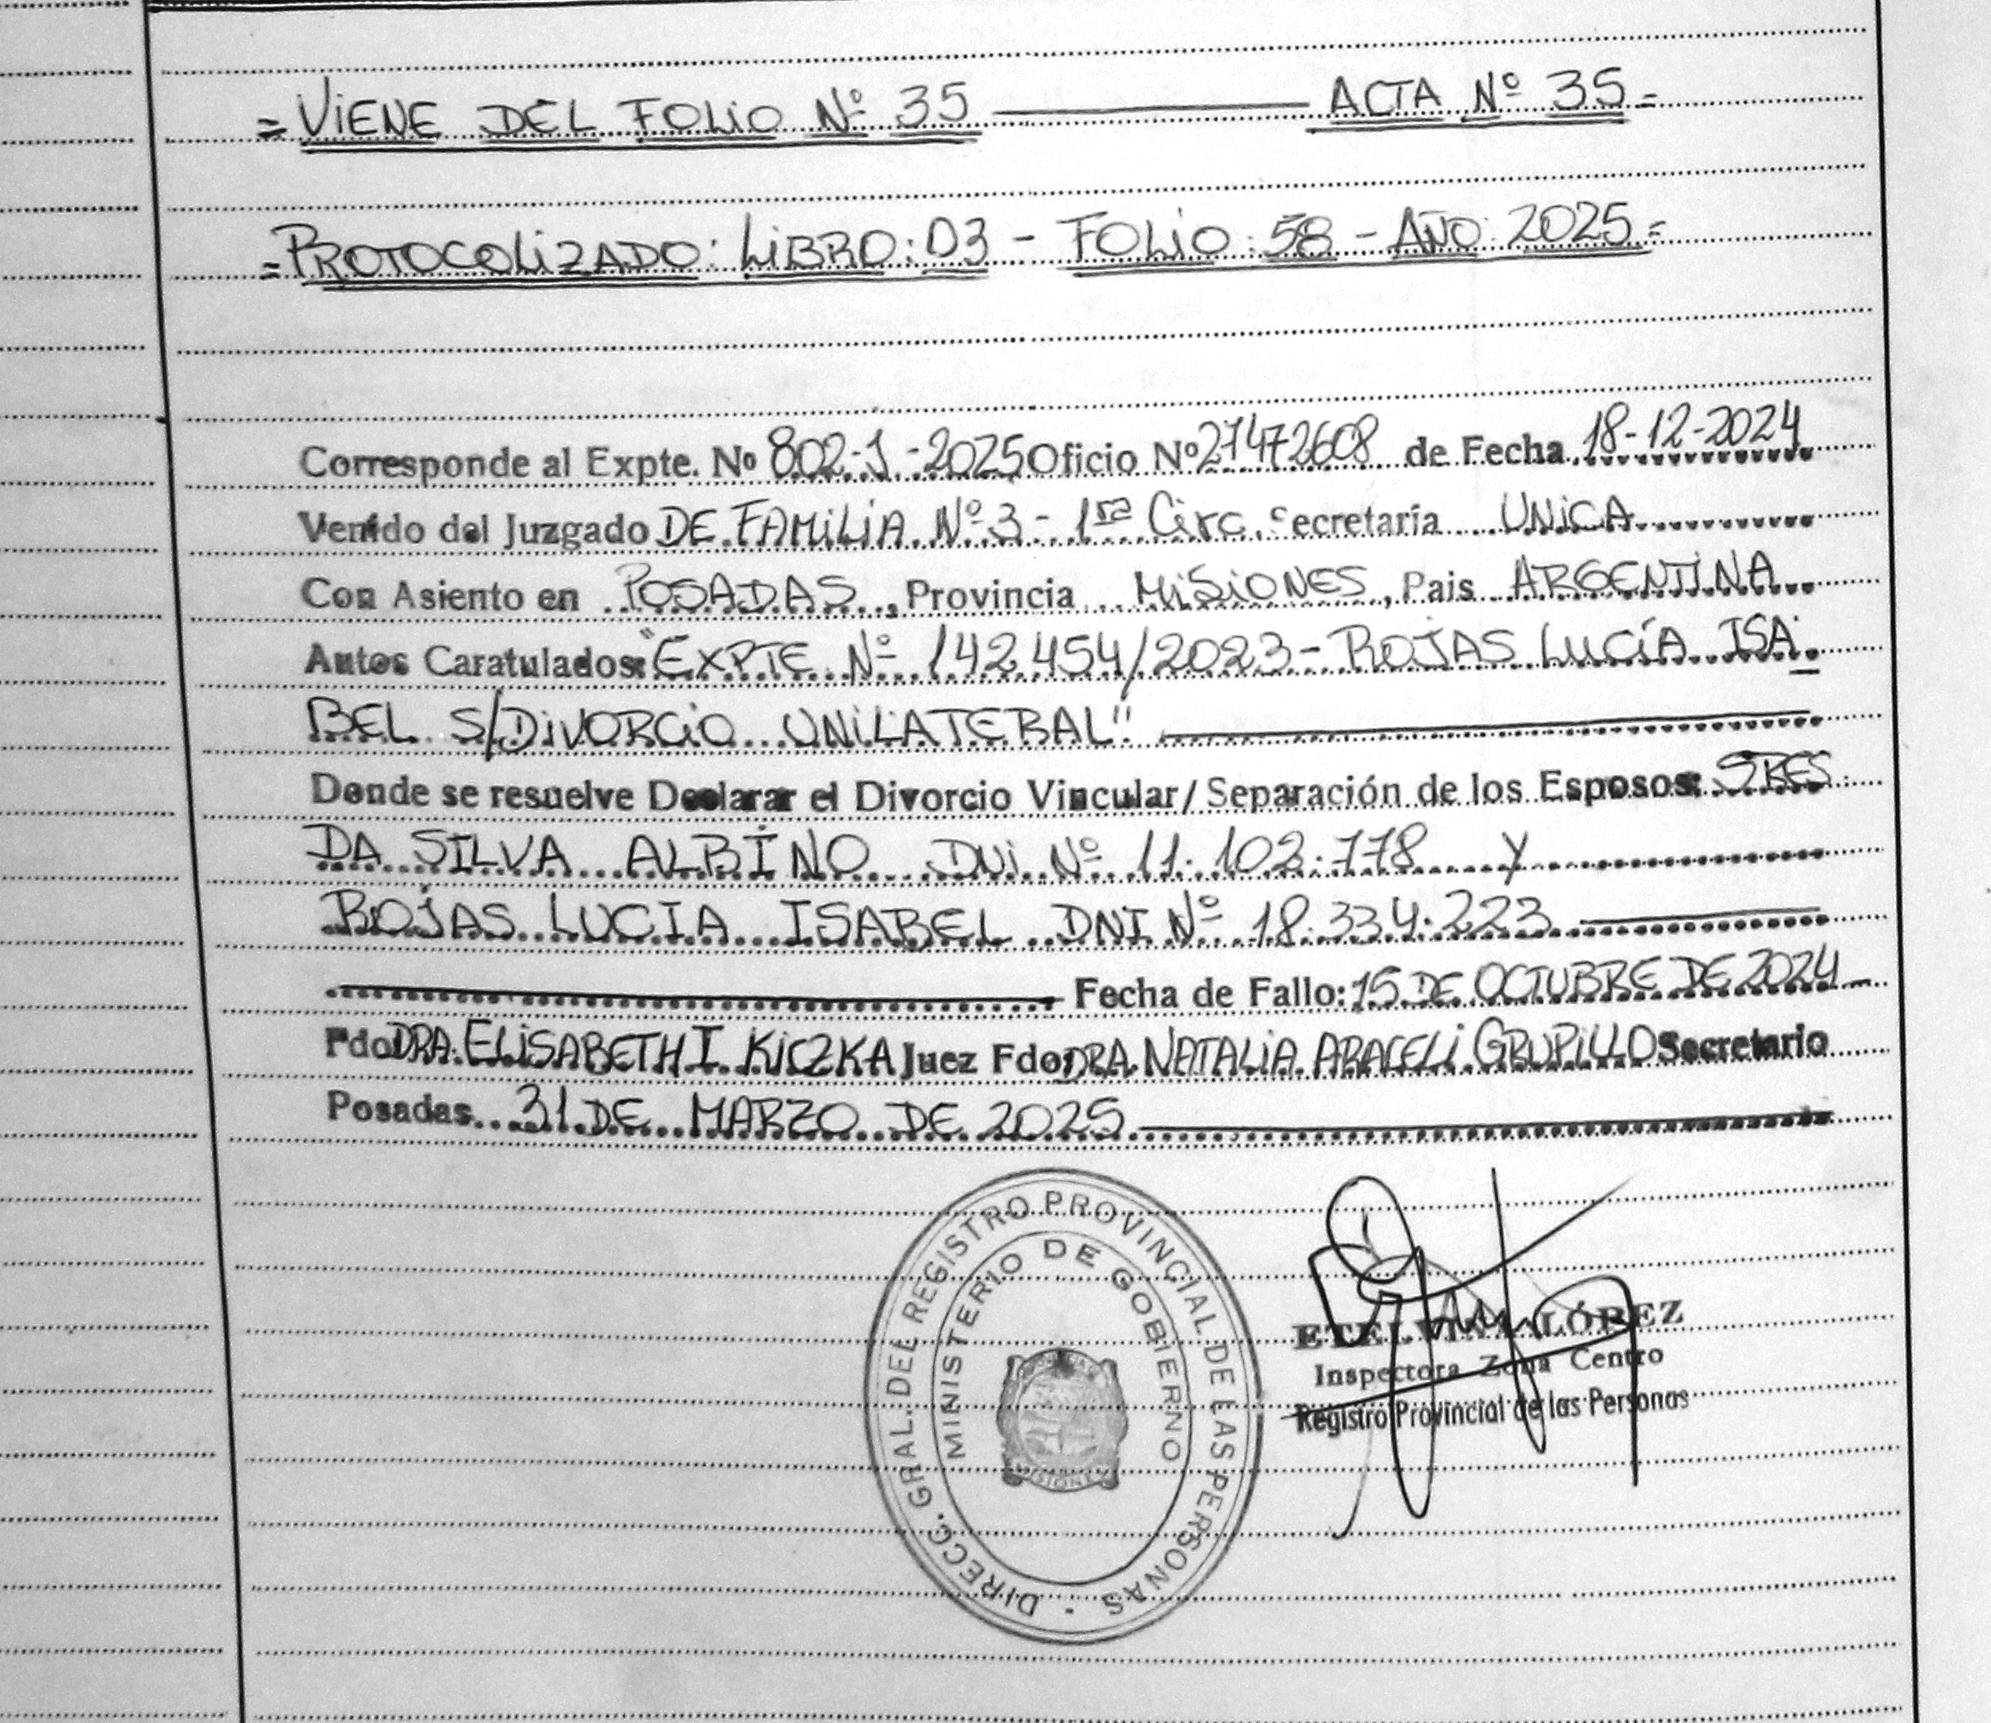 = VIENE DEL FOLIO Nº 35 ——— ACTA Nº 35 =
= PROTOCOLIZADO: LIBRO: 03 - FOLIO: 58 - AÑO: 2025 =
Corresponde al Expte. Nº 802-J-2025 Oficio Nº 27472608 de Fecha 18-12-2024
Venido del Juzgado DE FAMILIA Nº 3 - 1ra Circ. Secretaría UNICA
Con Asiento en POSADAS, Provincia MISIONES, Pais ARGENTINA
Autos Caratulados: "EXPTE Nº 142454/2023 - ROJAS LUCÍA ISA-
BEL S/DIVORCIO UNILATERAL"
Donde se resuelve Declarar el Divorcio Vincular/Separación de los Esposos: SRES
DA SILVA ALBINO DNI Nº 11.102.778 Y
ROJAS LUCIA ISABEL DNI Nº 18.334.223
Fecha de Fallo: 15 DE OCTUBRE DE 2024
Fdo DRA. ELISABETH I. KICZKA Juez Fdo: DRA. NATALIA ARACELI GRUPILLO Secretario
Posadas 31 DE MARZO DE 2025
DIRECC. GRAL. DEL REGISTRO PROVINCIAL DE LAS PERSONAS
MINISTERIO DE GOBIERNO
MISIONES
ETELVINA LÓPEZ
Inspectora Zona Centro
Registro Provincial de las Personas